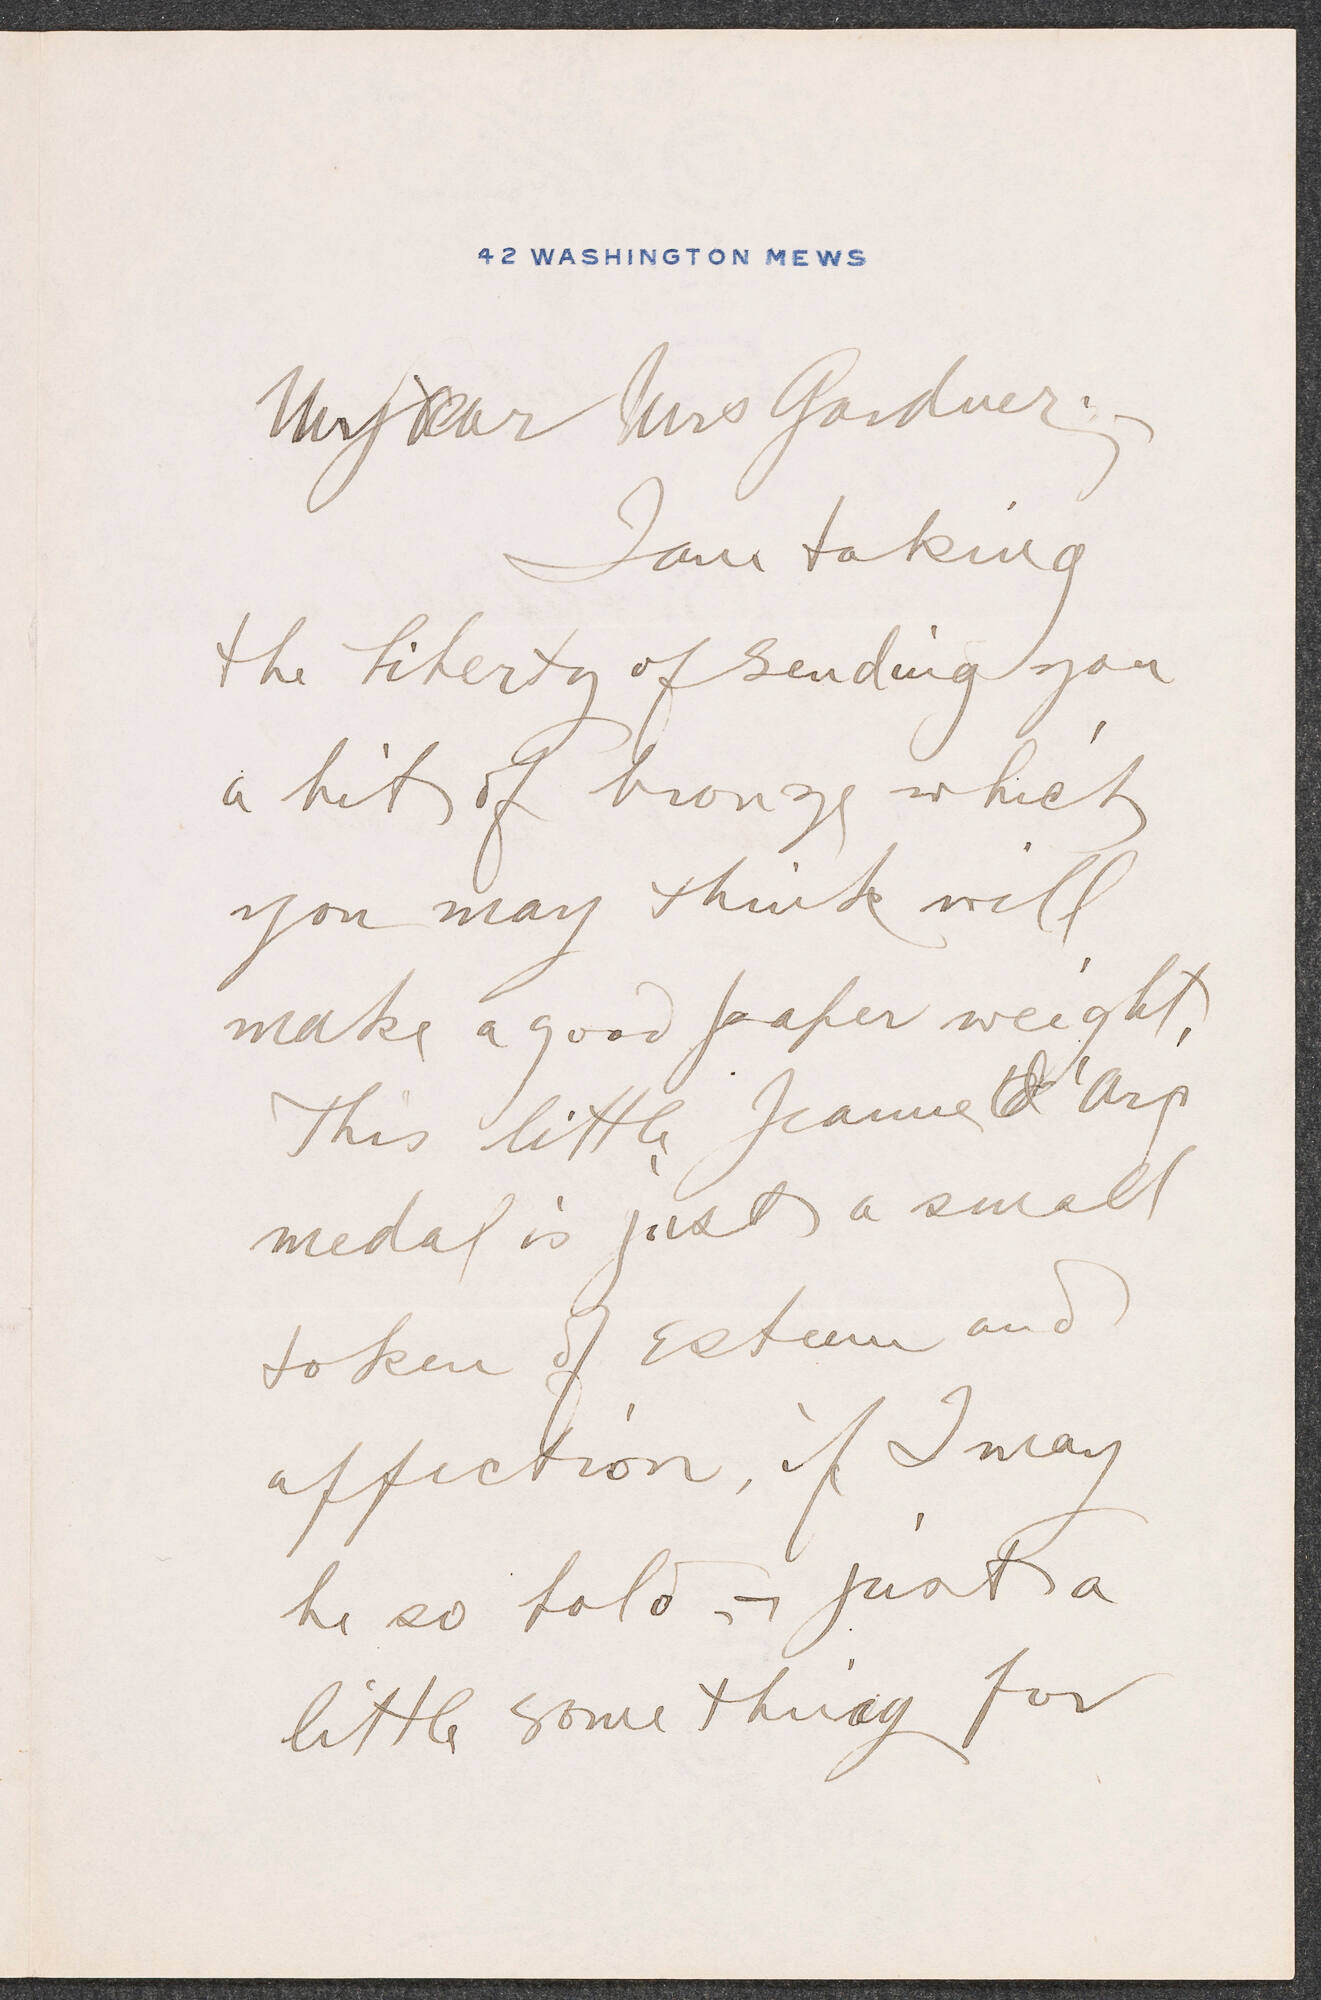 42 WASHINGTON MEWS
My dear Mrs Gardner:-
I am taking
the liberty of sending you
a bit of bronze which
you may think will
make a good paper weight.
This little Jeanne d'Arc
medal is just a small
token of esteem and
affection, if I may
be so bold - just a
little something for